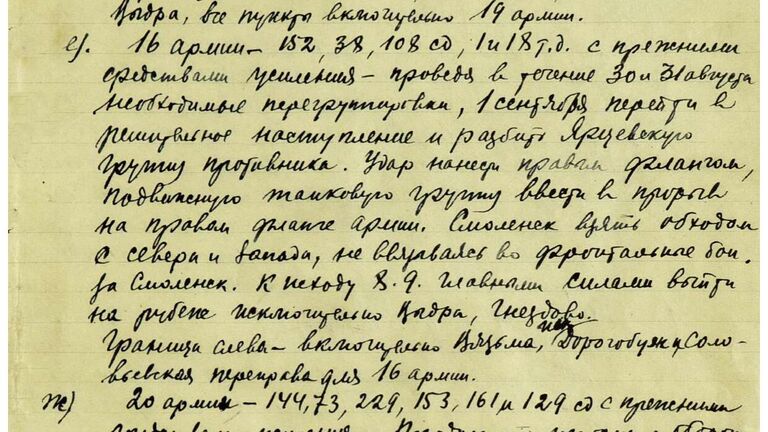 Цыдра, все пункты включительно 19 армии.
е). 16 армии – 152, 38, 108 сд, 1 и 18 т.д. с прежними
средствами усиления – проведя в течение 30 и 31 августа
необходимые перегруппировки, 1 сентября перейти в
решительное наступление и разбить Ярцевскую
группу противника. Удар нанести правым флангом,
подвижную танковую группу ввести в прорыв
на правом фланге армии. Смоленск взять обходом
с севера и запада, не ввязываясь во фронтальные бои
за Смоленск. К исходу 8.9. главными силами выйти
на рубеже исключительно Цыдра, Гнездово.
Граница слева – включительно Вязьма, Дорогобуж и Соло-
вьевская переправа для 16 армии.
ж) 20 армии – 144, 73, 229, 153, 161 и 129 сд с прежними